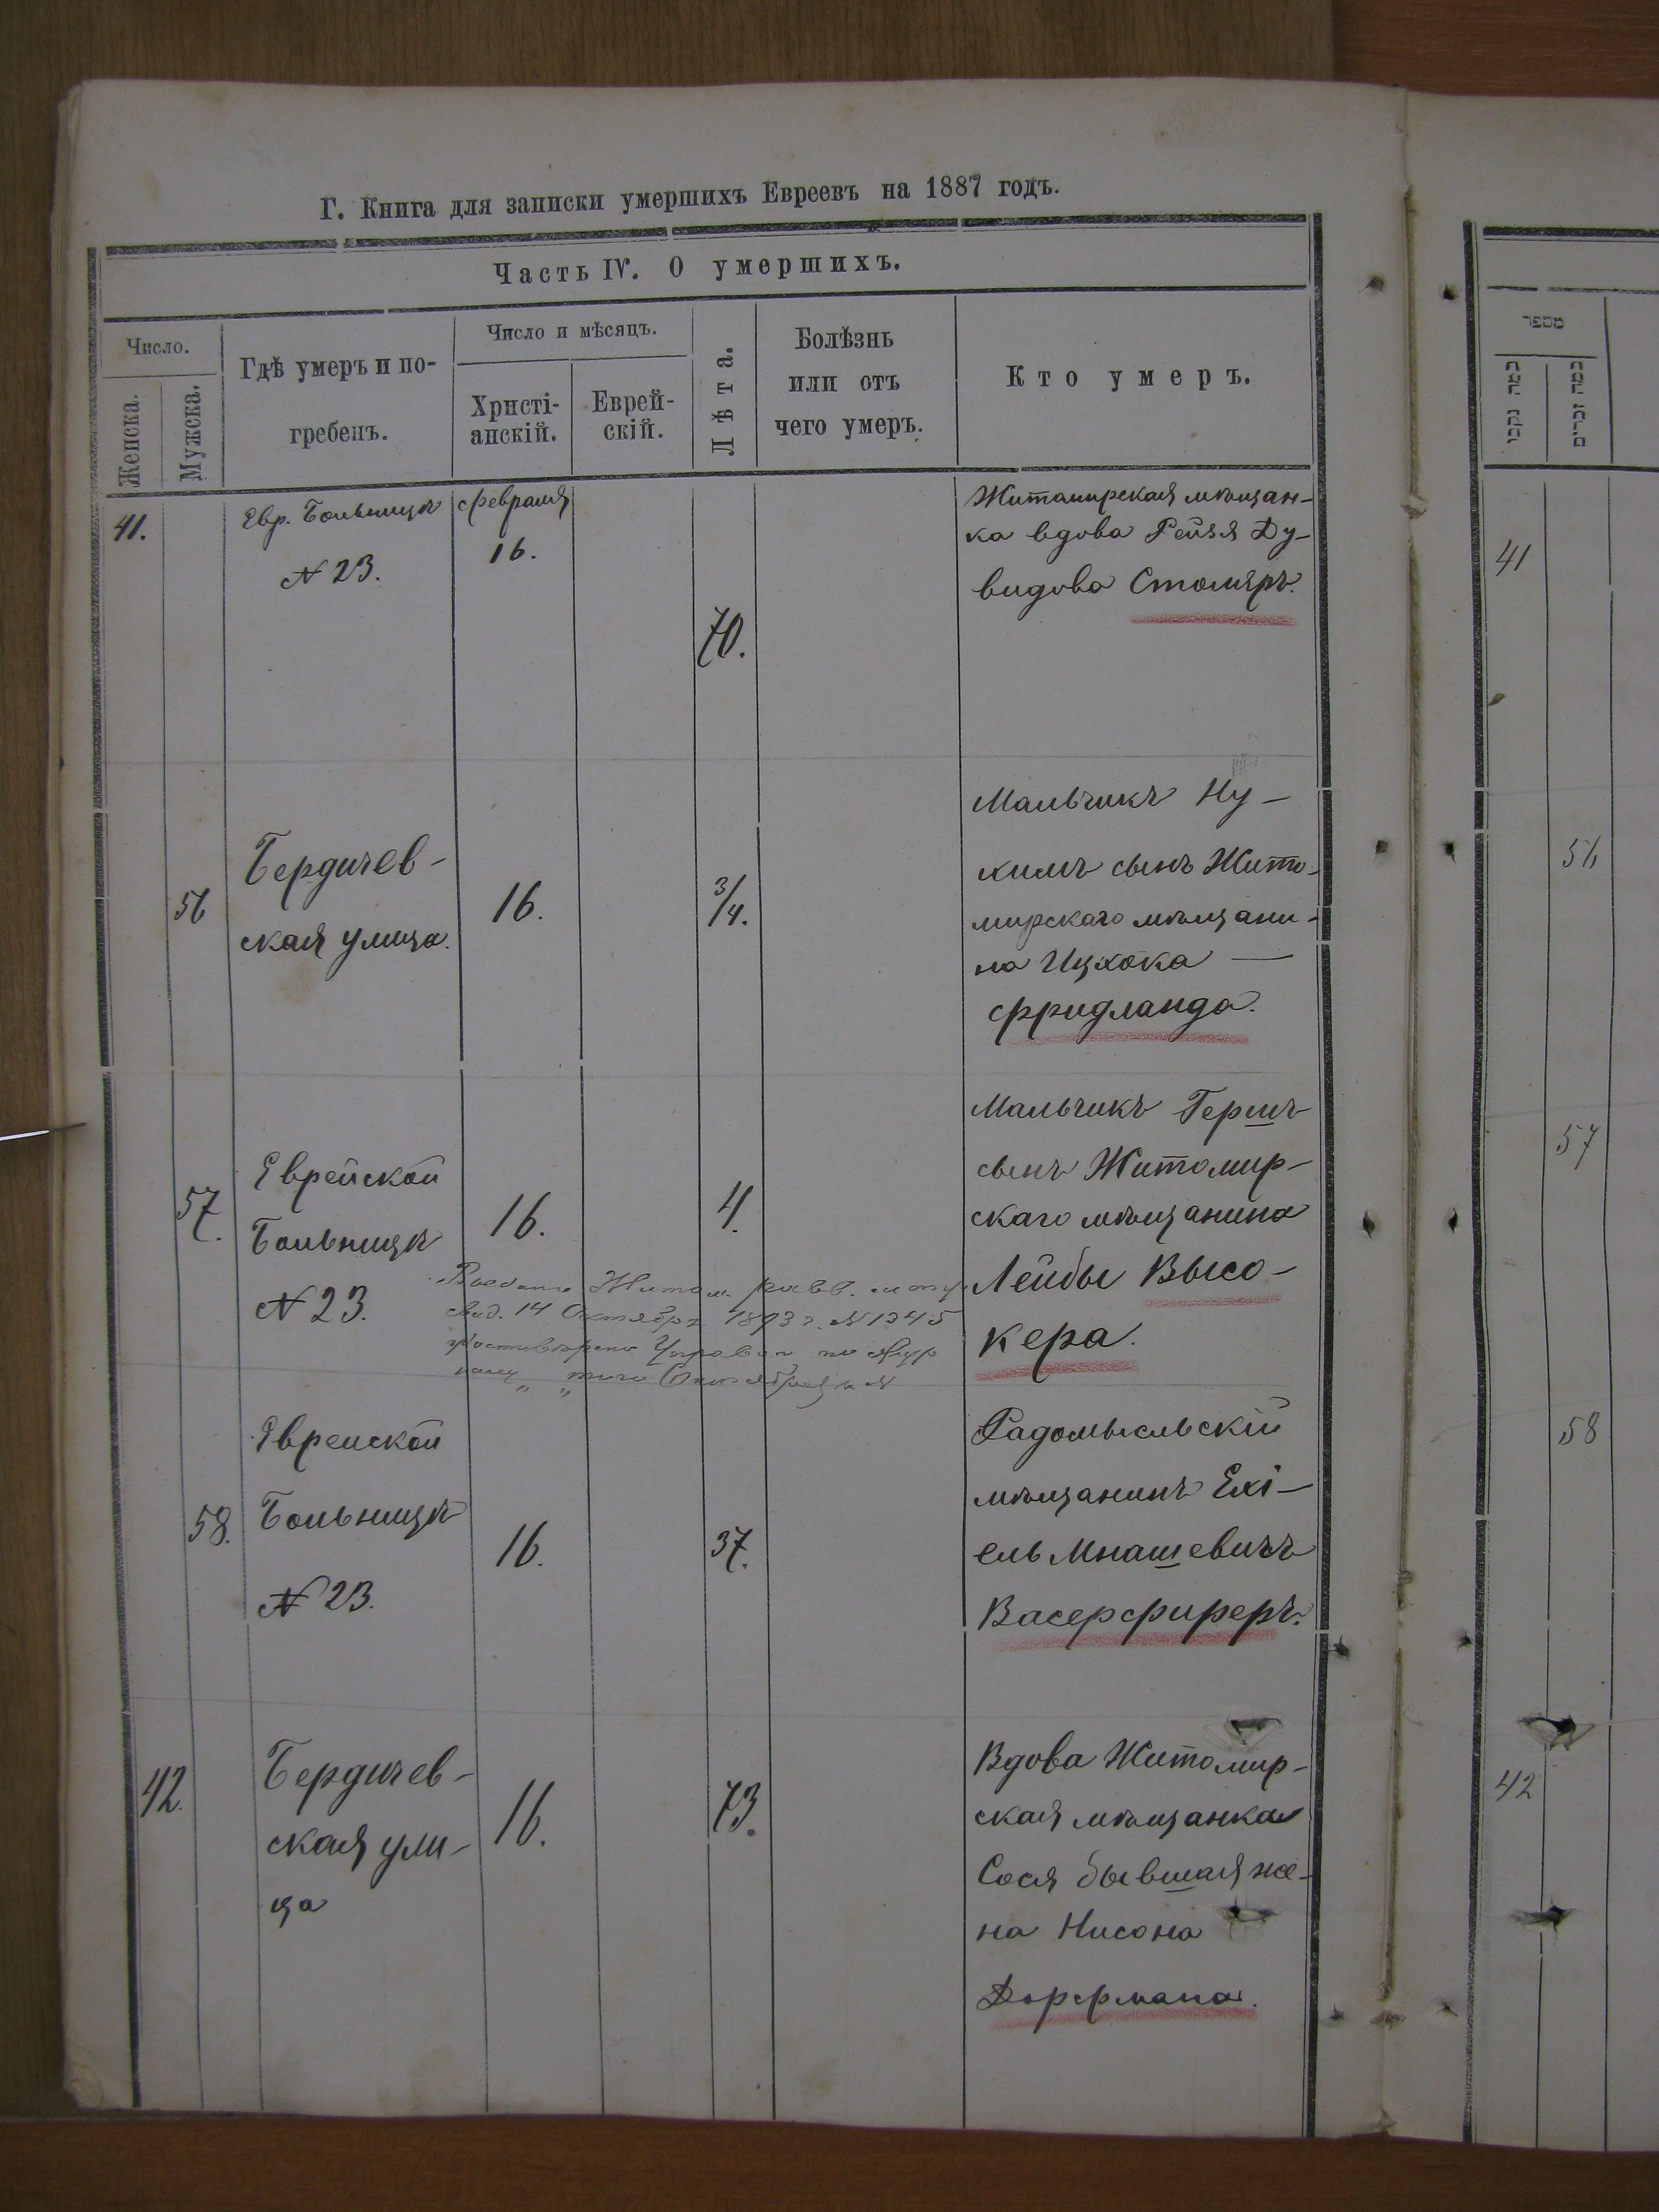 Г. Книга для записки умершихъ Евреевъ на 1887 годъ.
Часть IV. О умершихъ.
Число.
Женска.
Мужска.
Гдѣ умеръ и по-
гребенъ.
Число и мѣсяцъ.
Христі-
анскій.
Еврей-
скій.
Лѣта.
Болѣзнь
или отъ
чего умеръ.
Кто умеръ.
41.
Евр. Больницѣ
N 23.
Февраля
16.
70.
Житомирская мѣщан-
ка вдова Рейзя Ду-
видова Столяръ.
56
Бердичев-
ская улица.
16.
3/4.
Мальчикъ Ну-
химъ сынъ Жито-
мирскаго мѣщани-
на Ицхока —
Фридланда.
57.
Еврейской
Больницѣ
N 23.
16.
4.
Мальчикъ Гершъ
сынъ Житомир-
скаго мѣщанина
Лейбы Высо-
кера.
14 Октября 1893 г. N 1345
58.
Еврейской
Больницѣ
N 23.
16.
37.
Радомысльскій
мѣщанинъ Ехі-
ель Мнашевичъ
Васерфиреръ.
42.
Бердичев-
ская ули-
ца
16.
73.
Вдова Житомир-
ская мѣщанка
Сося бывшая же-
на Нисона
Дорфмана.
מספר
כמה נקבי
כמה זכרים
41
56
57
58
42